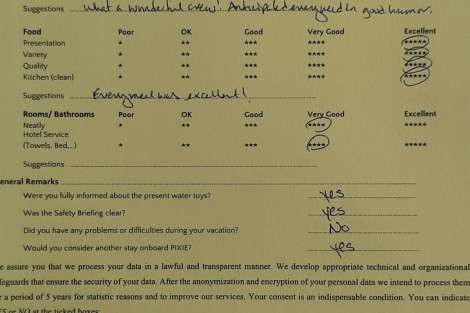 Suggestions What a wonderful crew! Anticipated every need in good humor.
Food Poor OK Good Very Good Excellent
Presentation * ** *** **** *****
Variety * ** *** **** *****
Quality * ** *** **** *****
Kitchen (clean) * ** *** **** *****
Suggestions Every meal was excellent!
Rooms/ Bathrooms Poor OK Good Very Good Excellent
Neatly * ** *** **** *****
Hotel Service
(Towels, Bed,..) * ** *** **** *****
Suggestions
eneral Remarks
Were you fully informed about the present water toys? yes
Was the Safety Briefing clear? yes
Did you have any problems or difficulties during your vacation? No
Would you consider another stay onboard PIXIE? yes
e assure you that we process your data in a lawful and transparent manner. We develop appropriate technical and organizational
feguards that ensure the security of your data. After the anonymization and encryption of your personal data we intend to process them
r a period of 5 years for statistic reasons and to improve our services. Your consent is an indispensable condition. You can indicate
ES or NO at the ticked boxes: